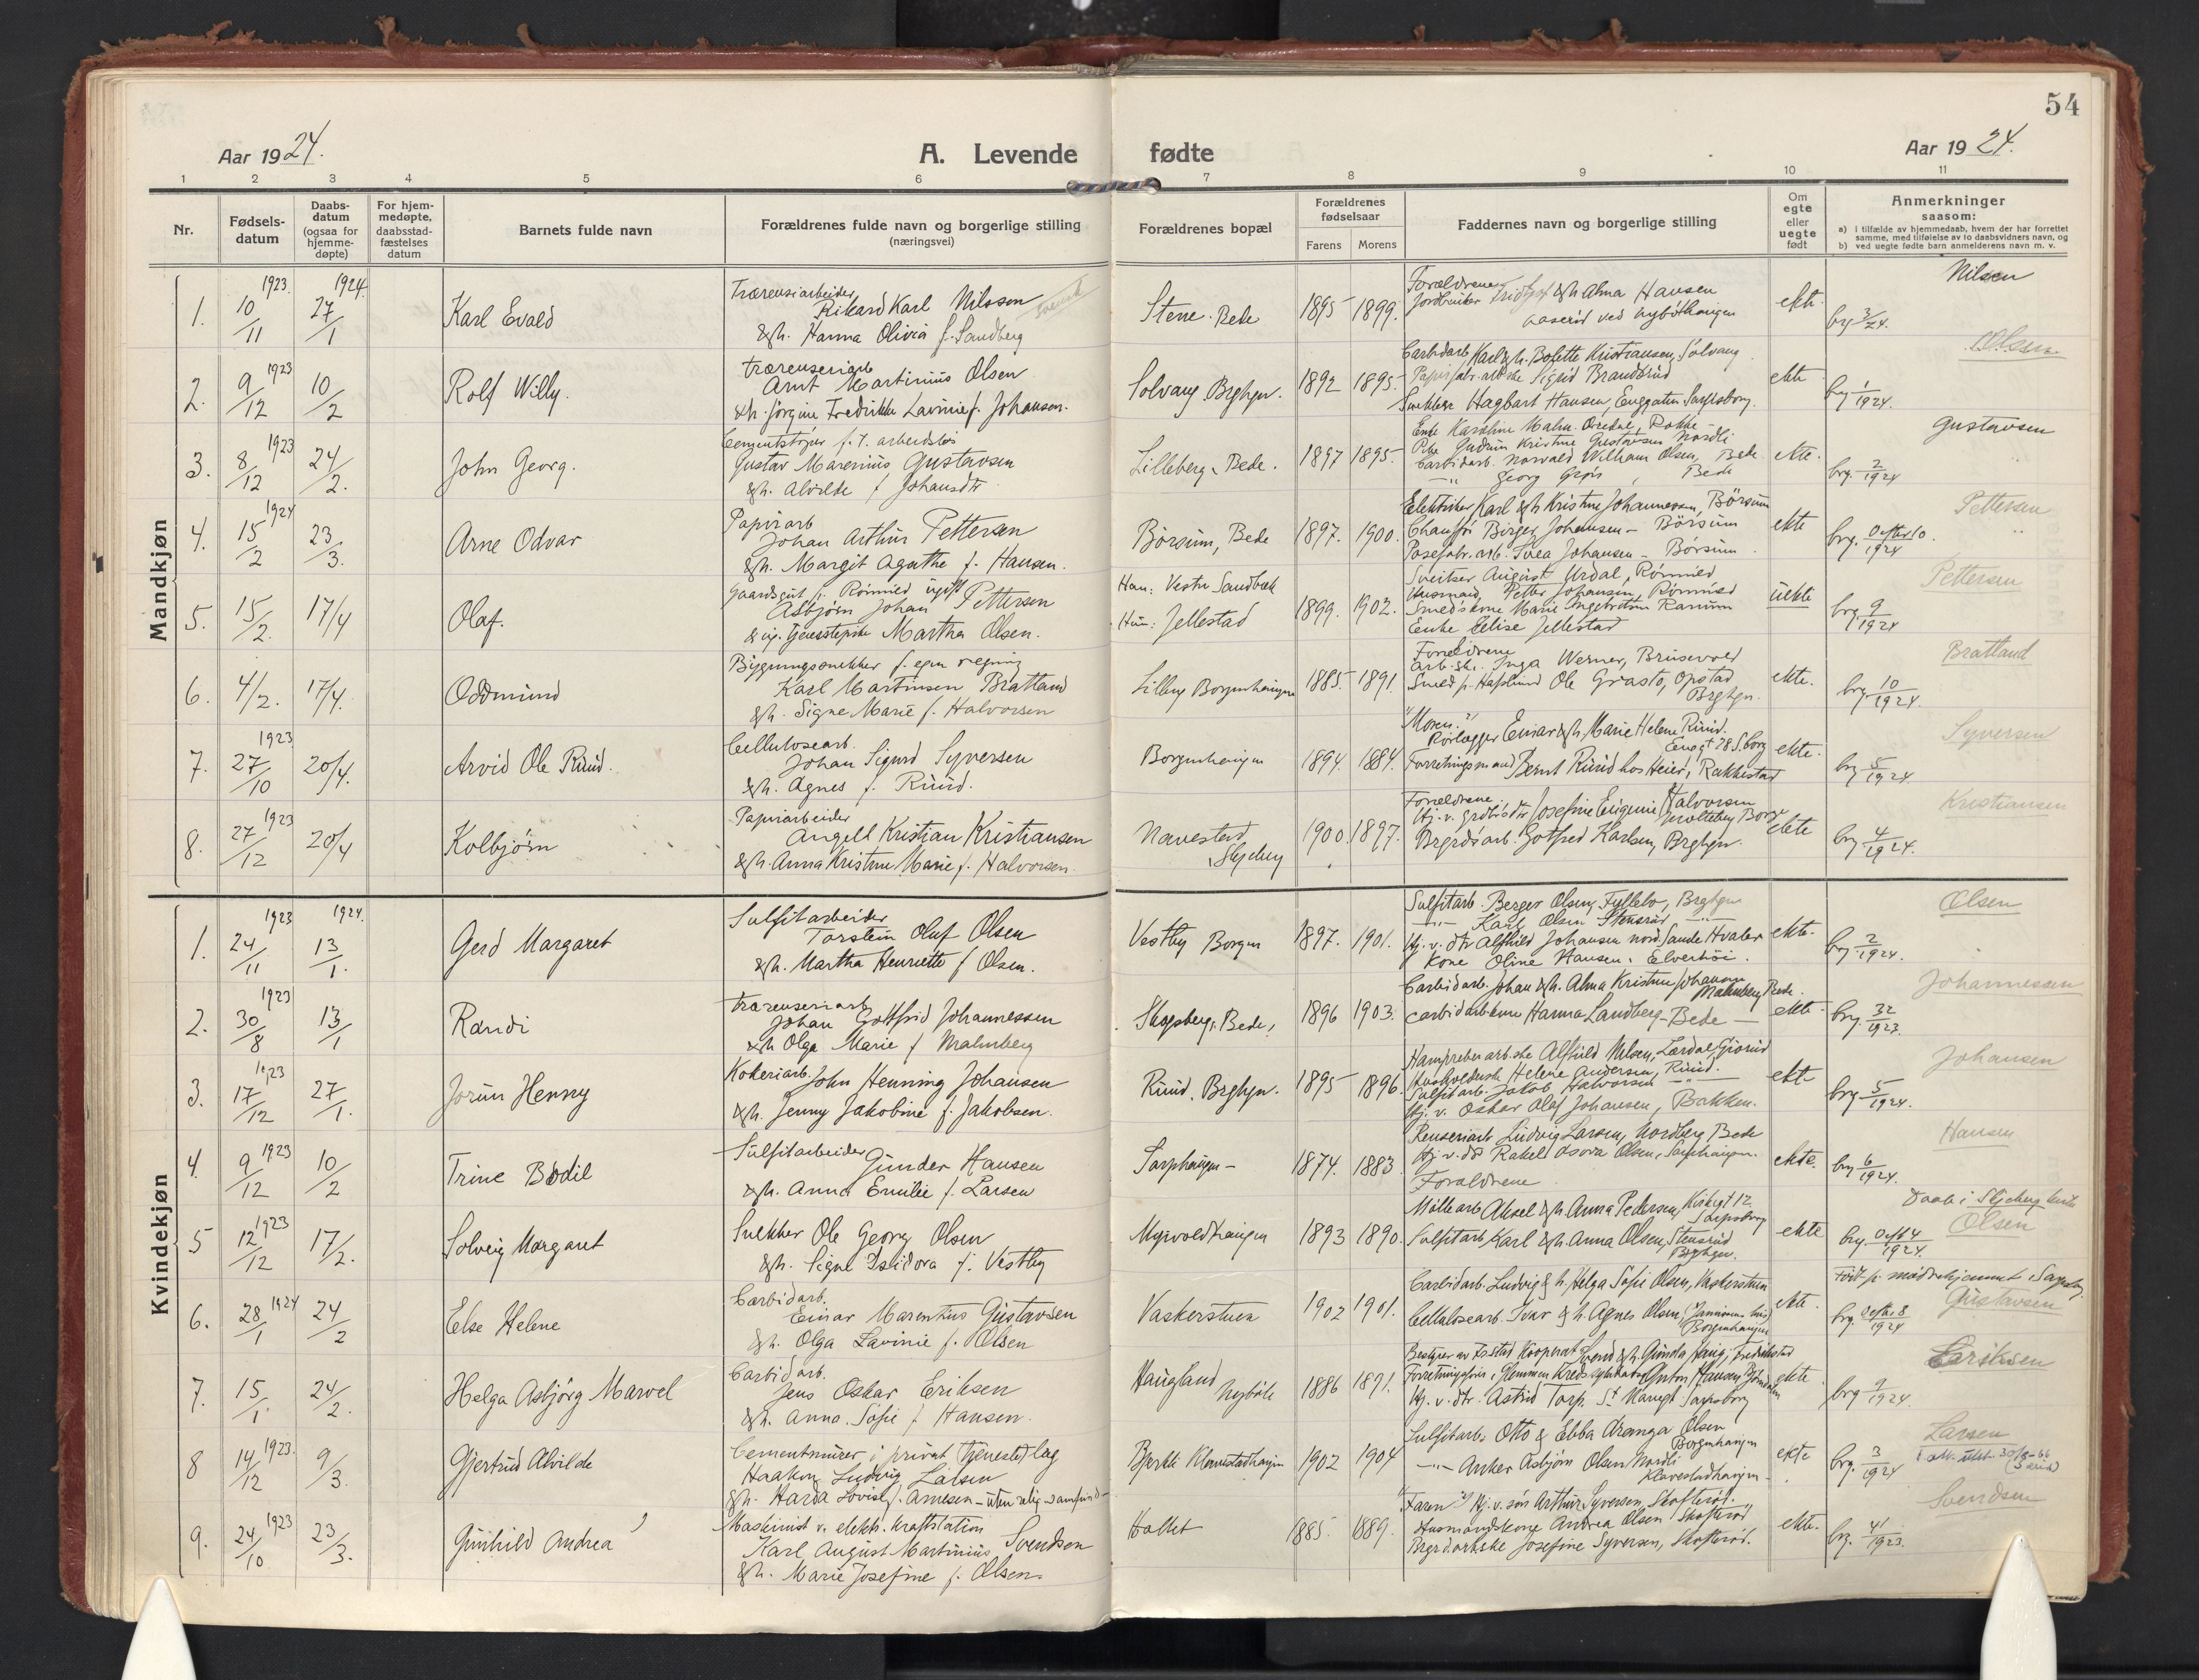 54
Aar 1924.
A. Levende fødte
Aar 1924.
1 2 3 4 5 6 7 8 9 10 11
Nr.
Fødsels-
datum
Daabs-
datum
(ogsaa for
hjemme-
døpte)
For hjem-
medøpte,
daabsstad-
fæstelses
datum
Barnets fulde navn
Forældrenes fulde navn og borgerlige stilling
(næringsvei)
Forældrenes bopæl
Forældrenes
fødselsaar
Farens Morens
Faddernes navn og borgerlige stilling
Om
egte
eller
uegte
født
Anmerkninger
saasom:
a) i tilfælde av hjemmedaab, hvem der har forrettet
samme, med tilføielse av to daabsvidners navn, og
b) ved uegte fødte barn anmelderens navn m. v.
Mandkjøn
1. 1923 10/11 1924 27/1 Karl Evald
Rikard Karl Nilssen
&h. Hanna Olivia f. Sandberg
Stene. Bede 1895 1899.
Forældrene
&h Alma Hansen
ekte. brg 3/24. Nilsen
2. 9/12 1923 10/2 Rolf Willy.
Arnt Martinius Olsen
&h. Jørgine Fredrikke Lavinie f. Johansen.
Solvang Brghgn. 1892 1895.
Carbidarb. Karl &h. Bolette Kristiansen, Solvang
Sigrid Brandsrud
Snekker Hagbart Hansen, Enggaten Sarpsborg.
ekte brg 1/1924. Olsen
3. 8/12 1923 24/2. John Georg.
Cementstøper f. t. arbeidsløs
Gustav Marenius Gustavsen
&h. Alvilde f Johansdtr
Lilleberg, Bede. 1897 1895.
Pike Gudrun Kristine Gustavsen Nordli
Carbidarb. Norvald Wilhelm Olsen, Bede
Georg Bede
ekte. brg. 2/1924 Gustavsen
4. 15/2 1924 23/3. Arne Odvar
Papirarb
Johan Arthur Pettersen
&h. Margit Agathe f. Hansen.
Børsum, Bede 1897. 1900.
Elektriker Karl &h Kristine Johannessen, Børsum
Chauffør Birger Johansen - Børsum
Posefabr. arb. Svea Johansen - Børsum
ekte brg. 10/1924 Pettersen
5. 15/2. 17/4 Olaf.
Asbjørn Johan Pettersen
& ug. tjenestepike Martha Olsen.
Han: Vestre Sandbæk
Hun: Jellestad 1899. 1902.
Sveitser August Urdal, Rømmed
Husmand Petter Johansen, Rømmed
Smedskone Marie Ingebretsen Ranum
Enke Elise Jellestad
uekte brg 9/1924 Pettersen
6. 4/2. 17/4. Oddmund
Bygningssnekker f. egen regning
Karl Martinsen Bratland
&h. Signe Marie f. Halvorsen
Lilleng Borgenhaugen 1885. 1891.
Forældrene
Inga Werner, Brusevold
Smed p. Hafslund Ole Grasto, Opstad
Brghgn.
ekte. brg 10/1924. Bratland
7. 1923 27/10 20/4. Arvid Ole Ruud.
Cellulosearb.
Johan Sigurd Syversen
&h. Agnes f. Ruud.
Borgenhaugen 1894. 1884.
"Moren."
Rørlegger Einar &h. Marie Helene Ruud.
Forretningsmand Bernt Ruud hos Heier, Rakkestad
ekte. brg 5/1924 Syversen
8. 27/12 1923 20/4 Kolbjørn
Papirarbeider
Angell Kristian Kristiansen
&h. Anna Kristine Marie f. Halvorsen.
Navestad
Skjeberg 1900. 1897.
Forældrene.
Josefine Eugenie Halvorsen
Gotfred Karlsen, Brghgn.
ekte brg. 4/1924. Kristiansen
Kvindekjøn
1. 1923 24/11 1924. 13/1. Gerd Margaret
Sulfitarbeider
Torstein Oluf Olsen
&h. Martha Henriette f Olsen.
Vestby Borgen 1897. 1901.
Sulfitarb. Berger Olsen, Brghgn
-"- Karl Olsen Stensrud -"-
Hj. v. dtr Alfhild Johansen nord. Sande Hvaler
Kone Oline Hansen, Elverhøi.
ekte. brg. 2/1924. Olsen
2. 1923 30/8 13/1 Randi
Johan Gottfrid Johannessen
&h Olga Marie f Malmberg
Skogsberg, Bede, 1896 1903.
Carbidarb. Johan &h. Alma Kristine Johansen
Malmberg Bede.
Carbidarb.kone Hanna Landberg - Bede -
ekte. brg. 32/1923. Johannessen
3. 1923 17/12 27/1. Jorun Henny
Kokeriarb. John Henning Johansen
&h. Jenny Jakobine f. Jakobsen.
Ruud, Brghgn. 1895 1896.
Helene Andersen, Ruud.
Sulfitarb. Jakob Halvorsen -"-
Hj. v. Oskar Olaf Johansen, Bakken.
ekte brg. 5/1924. Johansen
4. 9/12 1923 10/2 Trine Bodil
Sulfitarbeider
Gunder Hansen
&h. Anna Emilie f. Larsen
Sarphaugen - 1874. 1883.
Renseriarb. Ludvig Larsen, Nordberg Bede
Hj. v. dtr Rakel Olsen, Sarphaugen.
Forældrene
ekte. brg 6/1924. Hansen
5 12/12 1923 17/2. Solveig Margaret
Snekker Ole Georg Olsen
&h. Signe Isidora f. Vestby
Myrvoldhaugen 1893 1890.
Møllearb Aksel &h. Anna Pedersen, Kirkegt 12
Sarpsborg
Sulfitarb. Karl &h. Anna Olsen, Stensrud
Brghgn.
ekte Daab i Skjeberg kirke
brg. 4/1924. Olsen
6. 28/1 1924 24/2 Else Helene
Carbidarb.
Einar Marentius Gustavsen
&h. Olga Lavinie f. Olsen
Vaskerstuen 1902 1901.
Carbidarb. Ludvig & h. Helga Sofie Olsen, Vaskerstuen
Cellulosearb. Ivar & h. Agnes Olsen,
Borgenhaugen
ekte. Født p. mødrehjemmet i Sarpsborg
brg. 8/1924 Gustavsen
7. 15/1. 24/2. Helga Asbjørg Marvel
Carbidarb.
Jens Oskar Eriksen
&h. Anna. Sofie f Hansen.
Haugland
Nybøle 1886 1891.
Hj. v. dtr. Astrid Torp, St. Mariegt Sarpsborg
ekte. brg 9/1924. Eriksen
8 14/12 1923. 9/3 Gjertrud Alvilde
Cementmurer i privat tjeneste
Haakon Ludvig Larsen
&h. Harda Lovise f. Arnesen - uten relig. samfund -
Bjerkli Klavestadhaugen 1902 1904
Sulfitarb. Otto & Ebba Olsen
Borgenhaugen
-"- Anker Asbjørn Olsen Nordli
Klavestadhaugen.
ekte brg. 3/1924 Larsen
9. 24/10 1923 23/3. Gunhild Andrea
Maskinist v. elektr. kraftstation
Karl August Martinius Svendsen
&h. Marie Josefine f. Olsen.
Hallet 1885. 1889.
"Faren" Hj. v. søn Arthur Syversen, Skofterød.
Husmandskone Andrea Olsen Skofterød
Josefine Syversen, Skofterød.
ekte. brg. 41/1923. Svendsen